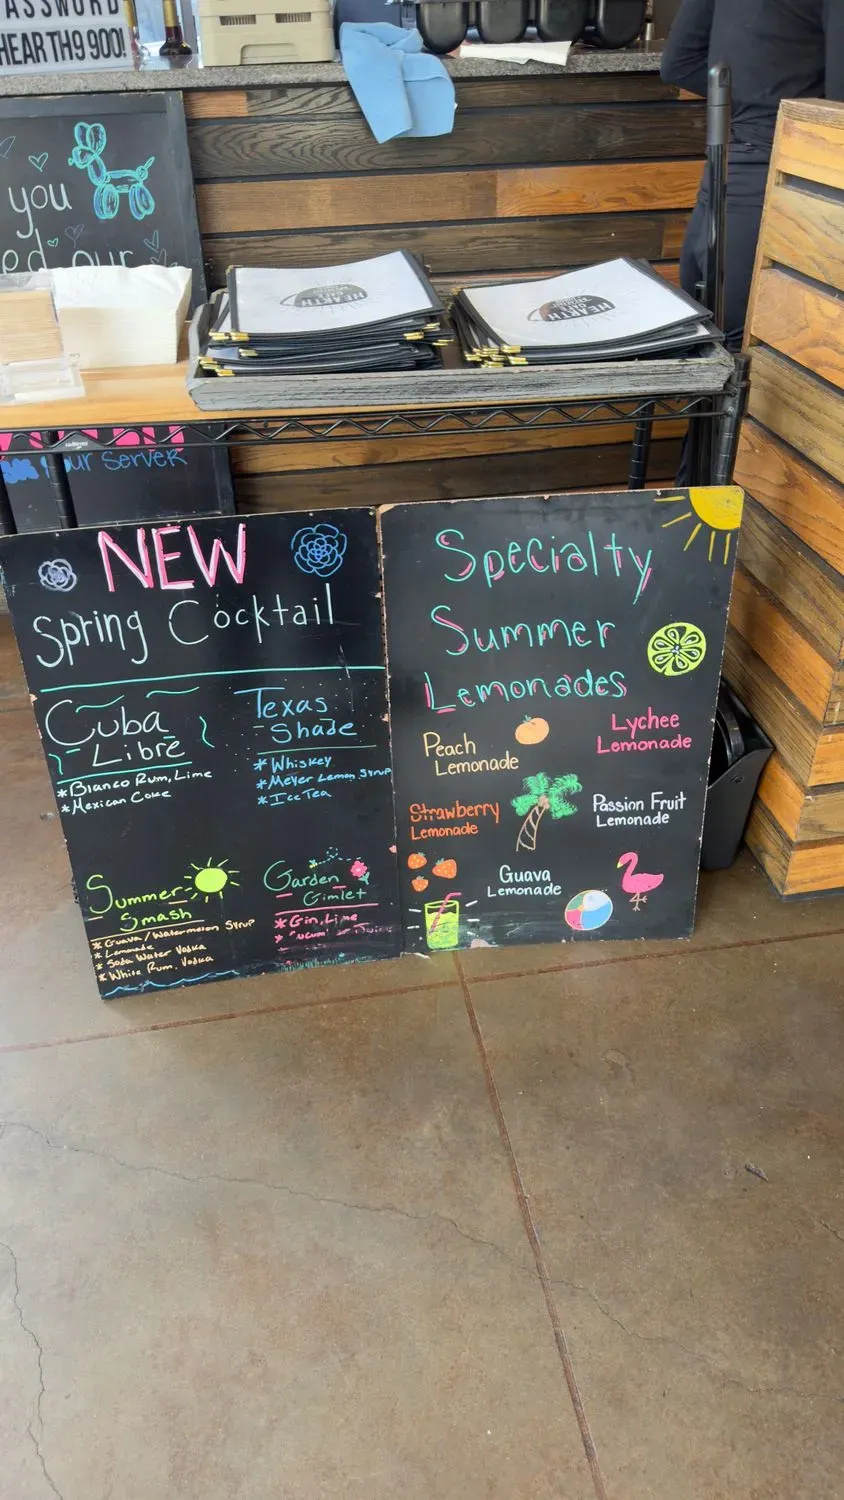 ASSWORD
HEARTH9900!
you
ed our
HEARTH
our server
NEW
Spring Cocktail
Cuba
Libre
*Blanco Rum, Lime
*Mexican Coke
Texas
Shade
*Whiskey
*Meyer Lemon Syrup
*Ice Tea
Summer
Smash
*Guava/Watermelon Syrup
*Lemonade
*Soda Water Vodka
*White Rum, Vodka
Garden
Gimlet
*Gin, Lime
Juice
Specialty
Summer
Lemonades
Peach
Lemonade
Lychee
Lemonade
Strawberry
Lemonade
Passion Fruit
Lemonade
Guava
Lemonade